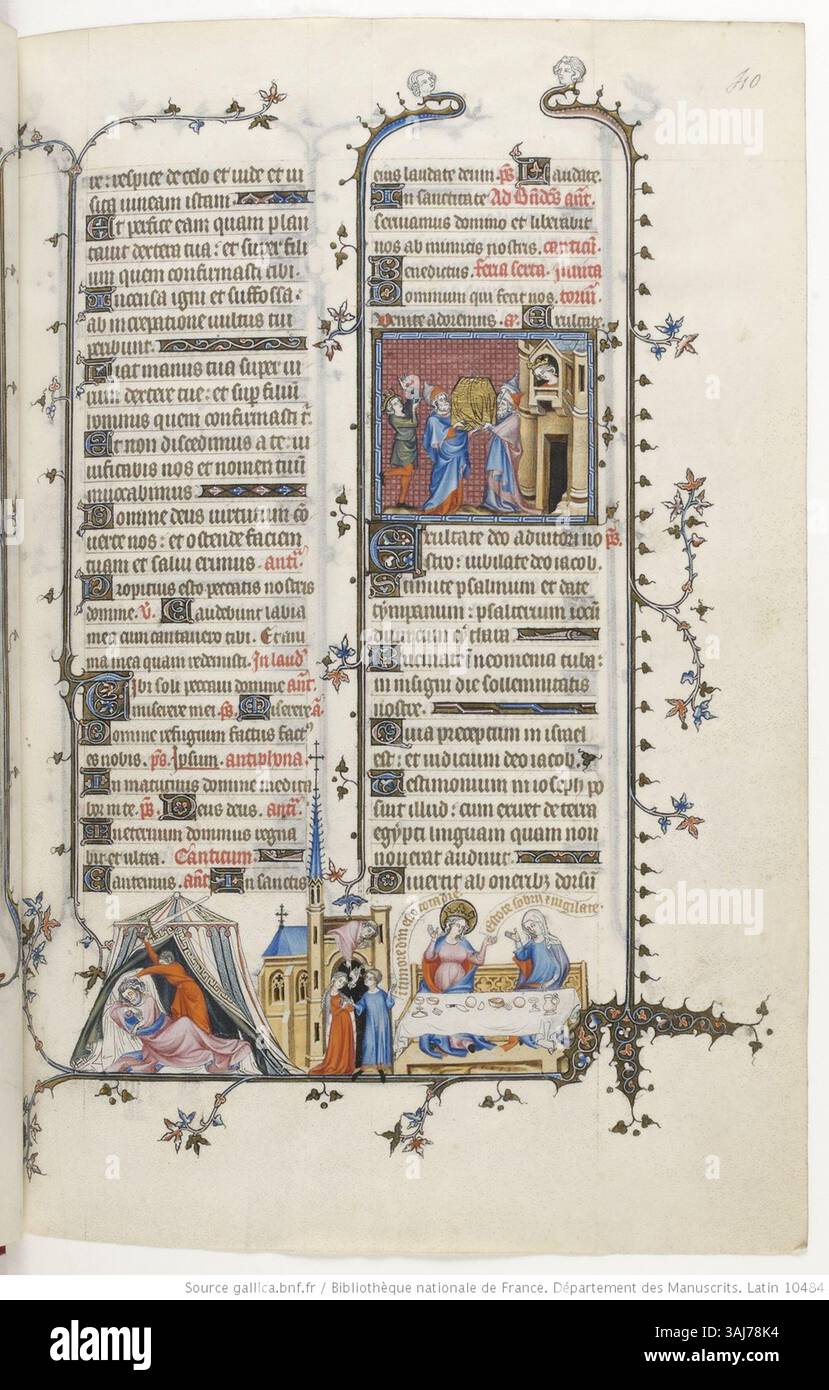 40
re : respice de celo et vide et vi
sita vineam istam
Et perfice eam quam plan
tavit dextera tua : et super fili
um quem confirmasti tibi .
Incensa igni et suffossa :
ab increpatione vultus tui
peribunt .
Fiat manus tua super vi
rum dextere tue : et sup filiu
hominis quem confirmasti t
Et non discedimus a te : vi
vificabis nos et nomen tuu
invocabimus
Domine deus virtutum co
verte nos : et ostende faciem
tuam et salvi erimus . ant
Propitius esto peccatis nostris
domine . v . Gaudebunt labia
mea cum cantavero tibi . Et ani
ma mea quam redemisti . In laud
Tibi soli peccavi domine ant .
miserere mei . ps . Miserere a
Domine refugium factus fact
es nobis . ps . Ipsum . antiphona .
In matutinis domine medita
bor in te . ps . Deus deus . ant
In eternum dominus regna
bit et ultra . Canticum .
Cantemus . ant In sanctis
eius laudate deum . ps Laudate .
In sanctitate Ad ant .
serviamus domino et liberabit
nos ab inimicis nostris . canticu .
Benedictus . feria sexta .
Dominum qui fecit nos .
Venite adoremus . Exultate
Exultate deo adiutori no ps .
stro : iubilate deo iacob .
Sumite psalmum et date
tympanum : psalterium iocu
dum cum cythara
Buccinate i neomenia tuba :
in insigni die sollennitatis
nostre .
Quia preceptum in israel
est : et iudicium deo iacob .
Testimonium in ioseph po
suit illud : cum exiret de terra
egypti linguam quam non
noverat audivit
Divertit ab oneribz dorsu
Estote sobrii et vigilate .
Source gallica.bnf.fr / Bibliothèque nationale de France. Département des Manuscrits. Latin 10484
alamy
Image ID: 3AJ78K4
www.alamy.com